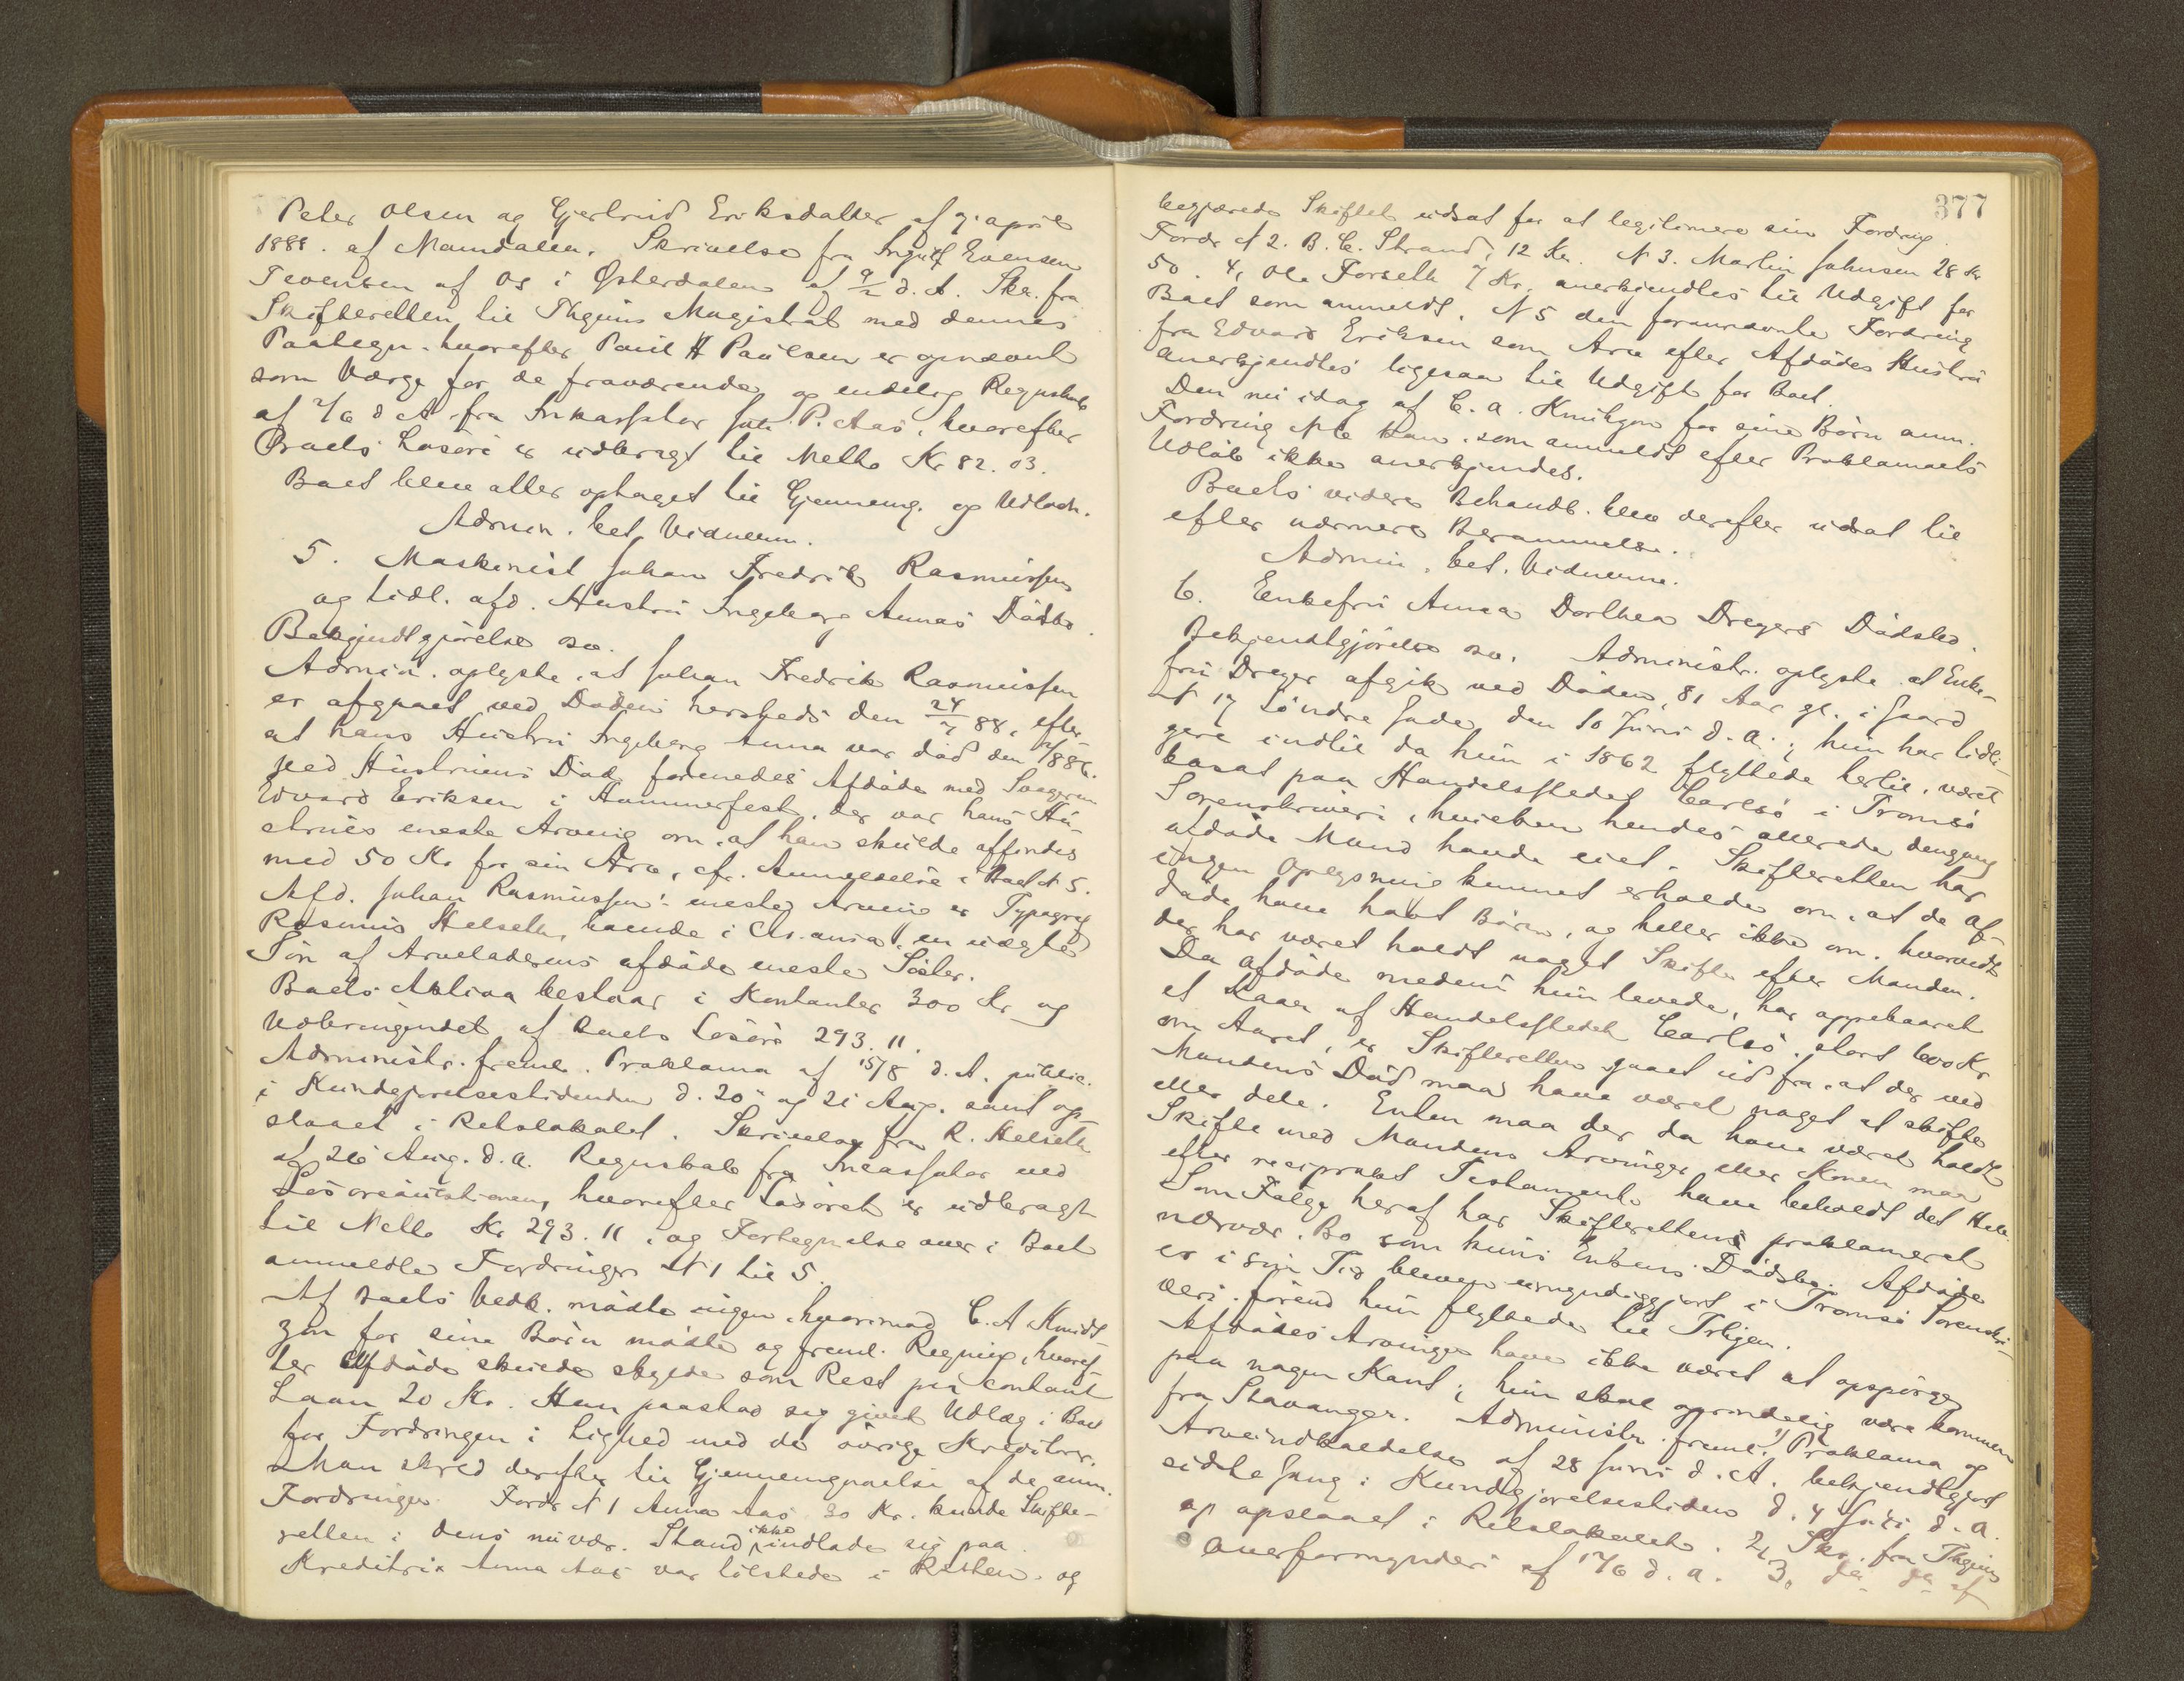 Peter Olsen og Gjertrud Eriksdatter af 7. april
1888. af Manndalen. Skrivelse fra Ingulf Evensen
Tevensen af Os i Østerdalen af 9/2 d. A. Skr. fra
Skifteretten til Thjems Magistrat med dennes
Paategn. hvorefter Poul H Paulsen er opnævnt
som Værge for de fraværende og endelig Regnskab
af 2/6 d A fra Inkassator Joh. P. Aas, hvorefter
Boets Løsøre er udbragt til Netto Kr 82. 03.
Boet blev atter optaget til Gjennemg. og Udlodn.
Admin. bet. Vidnerne.
5. Maskinist Johan Fredrik Rasmussen
og tidl. afd. Hustru Ingeborg Annas Dødsbo.
Bekjendtgjørelse so.
Admin. oplyste, at Johan Fredrik Rasmussen
er afgaaet ved Døden hersteds den 24/7 88, efter
at hans Hustru Ingeborg Anna var død den 1886.
Ved Hustruens Død forenedes Afdøde med Svogeren
Edvard Eriksen i Hammerfest, der var hans Hu-
strues eneste Arving om, at han skulde affindes
med 50 Kr for sin Arv, cfr. Anmeldelse i Boet N 5.
Afd. Johan Rasmussens eneste Arving er Typograf
Rasmus Helseth, boende i Chr.ania, en uægte
Søn af Arveladerens afdøde eneste Søster.
Boets Aktiva bestaar i Kontanter 300 Kr og
Udbringendet af Boets Løsøre 293. 11.
Administr. freml. Proklama af 15/8 d. A. public.
i Kundgjørelsestidenden d. 20 og 21 Aug. samt op-
slaaet i Retslokalet. Skrivelse fra R. Helseth
af 26 Aug. d. A. Regnskab fra Incassator ved
Løsøreauktionen, hvorefter Løsøret er udbragt
til Netto Kr 293. 11, og Fortegnelse over i Boet
anmeldte Fordringer N 1 til 5.
Af Boets Vedk. mødte ingen, hvorimod C. A Knudt
zon for sine Børn mødte og freml. Regning, hvoref-
ter Afdøde skulde skylde som Rest paa contant
Laan 20 Kr. Han paastod sig givet Udlæg i Boet
for Fordringen i Lighed med de øvrige Kreditorer.
Man skred derefter til Gjennemgaaelse af de anm.
Fordringer. Fordr. N 1 Anna Aas 30 Kr. kunde Skifte-
retten i dens nuvær. Stand ikke indlade sig paa.
Kreditrix Anna Aas var tilstede i Retten og
377
begjærede Skiftet udsat for at legitimere sin Fordring.
Fordr N 2. B. C. Strand, 12 Kr. N 3. Martin Johnsen 28 Kr
50. 4, Ole Forseth 7 Kr, anerkjendtes til Udgift for
Boet som anmeldt. N 5 den forannævnte Fordring
fra Edvard Eriksen som Arv efter Afdødes Hustru
anerkjendtes ligesaa til Udgift for Boet.
Den nu idag af C. A. Knudtzon for sine Børn anm.
Fordring kan, som anmeldt efter Proklamaets
Udløb ikke anerkjendes.
Boets videre Behandl. blev derefter udsat til
efter nærmere Berammelse.
Admin. bet. Vidnerne.
6. Enkefru Anna Dorthea Dreyers Dødsbo.
Bekjendtgjørelse so. Administr. oplyste at Enke-
fru Dreyer afgik ved Døden, 81 Aar gl. i Gaard
N 17 Søndre Gade, den 10 Juni d. A.; hun har tidli-
gere indtil da hun i 1862 flyttede hertil, været
bosat paa Handelsstedet Carlsø i Tromsø
Sorenskriveri, hvilken hendes allerede dengang
afdøde Mand havde eiet. Skifteretten har
ingen Oplysning kunnet erholde om, at de Af-
døde have havt Børn, og heller ikke om, hvorvidt
der har været holdt noget Skifte efter Manden.
Da afdøde medens hun levede, har oppebaaret
et Kaar af Handelsstedet Carlsø, stort 600 Kr
om Aaret, er Skifteretten gaaet ud fra, at der ved
Mandens Død maa have været noget at skifte
eller dele. Enten maa der da have været holdt
Skifte med Mandens Arvinger eller Konen maa
efter reciprokt Testamente have beholdt det Hele.
Som Følge heraf har Skifteretten proklameret
nærvær. Bo som kun Enkens Dødsbo. Afdøde
er i sin Tid bleven umyndiggjort i Tromsø Sorenskri-
veri førend hun flyttede til Trhjem.
Afdødes Arvinger have ikke været at opspørge
paa nogen Kant; hun skal oprindelig være kommen
fra Stavanger. Administr. freml. 1) Proklama og
Arveindkaldelse af 28 Juni d. A. bekjendtgjort
sidste Gang i Kundgjørelsestiden d. 4 Juli d. A.
og opslaaet i Retslokalet. 2, Skr. fra Thjems
Overformynderi af 17/6 d. A. 3. da da af